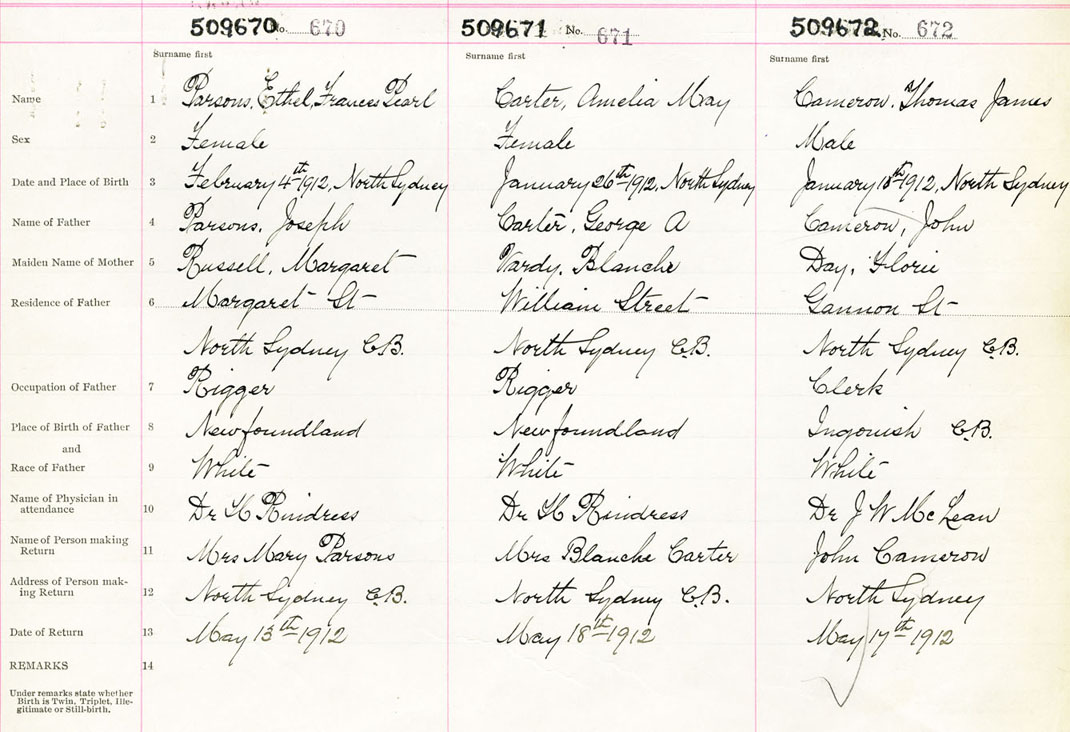 509670 No. 670 509671 No. 671 509672 No. 672
Surname first Surname first Surname first
Name 1 Parsons, Ethel, Frances Pearl Carter, Amelia May Cameron, Thomas James
Sex 2 Female Female Male
Date and Place of Birth 3 February 4th 1912, North Sydney January 26th 1912, North Sydney January 18th 1912, North Sydney
Name of Father 4 Parsons, Joseph Carter, George A Cameron, John
Maiden Name of Mother 5 Russell, Margaret Vardy, Blanche Day, Florie
Residence of Father 6 Margaret St William Street Gannon St
North Sydney C.B. North Sydney C.B. North Sydney C.B.
Occupation of Father 7 Rigger Rigger Clerk
Place of Birth of Father 8 Newfoundland Newfoundland Ingonish C.B.
and
Race of Father 9 White White White
Name of Physician in
attendance 10 Dr H Rindress Dr H Rindress Dr J W McLean
Name of Person making
Return 11 Mrs Mary Parsons Mrs Blanche Carter John Cameron
Address of Person mak-
ing Return 12 North Sydney C.B. North Sydney C.B. North Sydney
Date of Return 13 May 13th 1912 May 18th 1912 May 17th 1912
REMARKS 14
Under remarks state whether
Birth is Twin, Triplet, Ille-
gitimate or Still-birth.